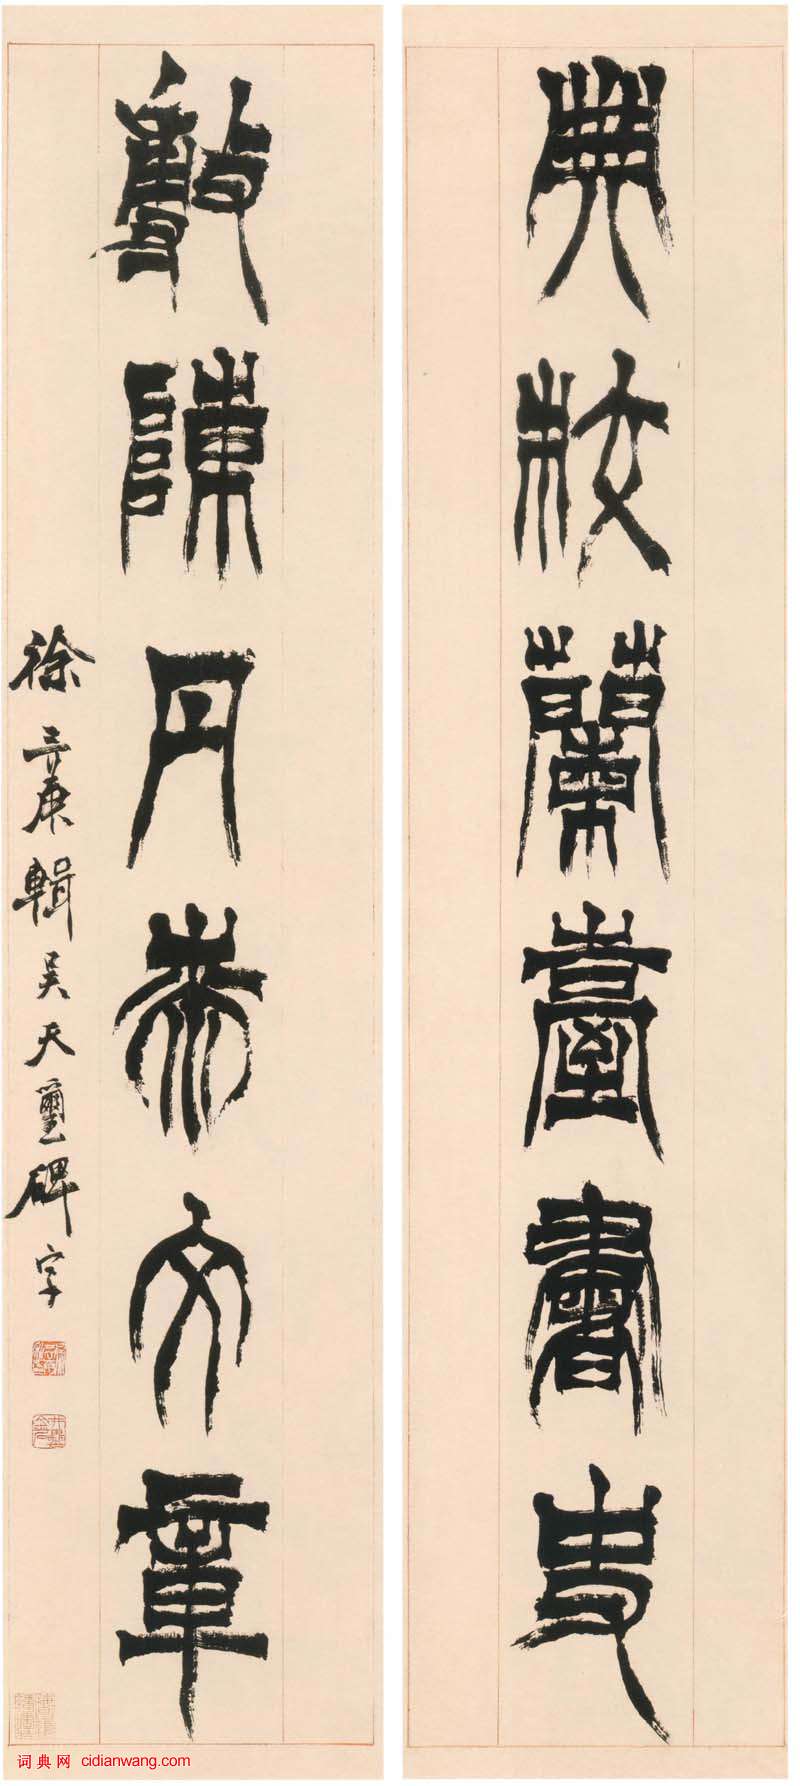 典校蘭臺書史
敷陳丹桼文章
徐三庚輯吴天璽碑字
词典网 cidianwang.com